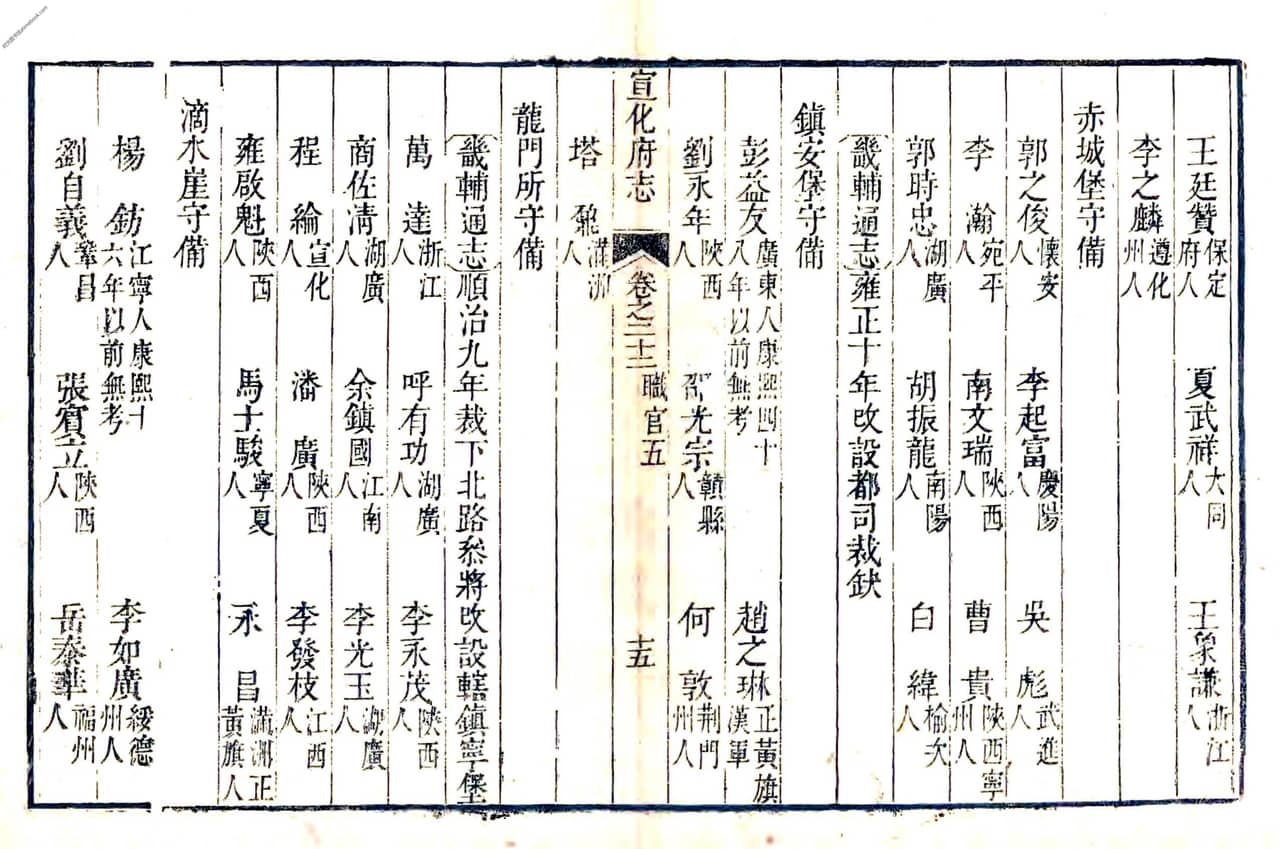 王廷贊保定府人 夏武祥大同人 王象謙浙江人
李之麟遵化州人
赤城堡守備
郭之俊懷安人 李起富慶陽人 吳彪武進人
李瀚宛平人 南文瑞陝西人 曹貴陝西寧州人
郭時忠湖廣人 胡振龍南陽人 白緯榆次人
畿輔通志雍正十年改設都司裁缺
鎮安堡守備
彭益友廣東人康熙四十八年以前無考 趙之琳正黃旗漢軍
劉永年陝西人 邵光宗贛縣人 何敦荊門州人
宣化府志 卷之二十二 職官五 十五
塔 滿洲人
龍門所守備
畿輔通志順治九年裁下北路叅將改設轄鎮寧堡
萬達浙江人 呼有功湖廣人 李永茂陝西人
商佐清湖廣人 余鎮國江南人 李光玉湖廣人
程綸宣化人 潘廣陝西人 李發枝江西人
雍啟魁陝西人 馬士駿寧夏人 永昌滿洲正黃旗人
滴水崖守備
楊鈁江寧人康熙十六年以前無考 李如廣綏德州人
劉自義鞏昌人 張賓立陝西人 岳泰華福州人